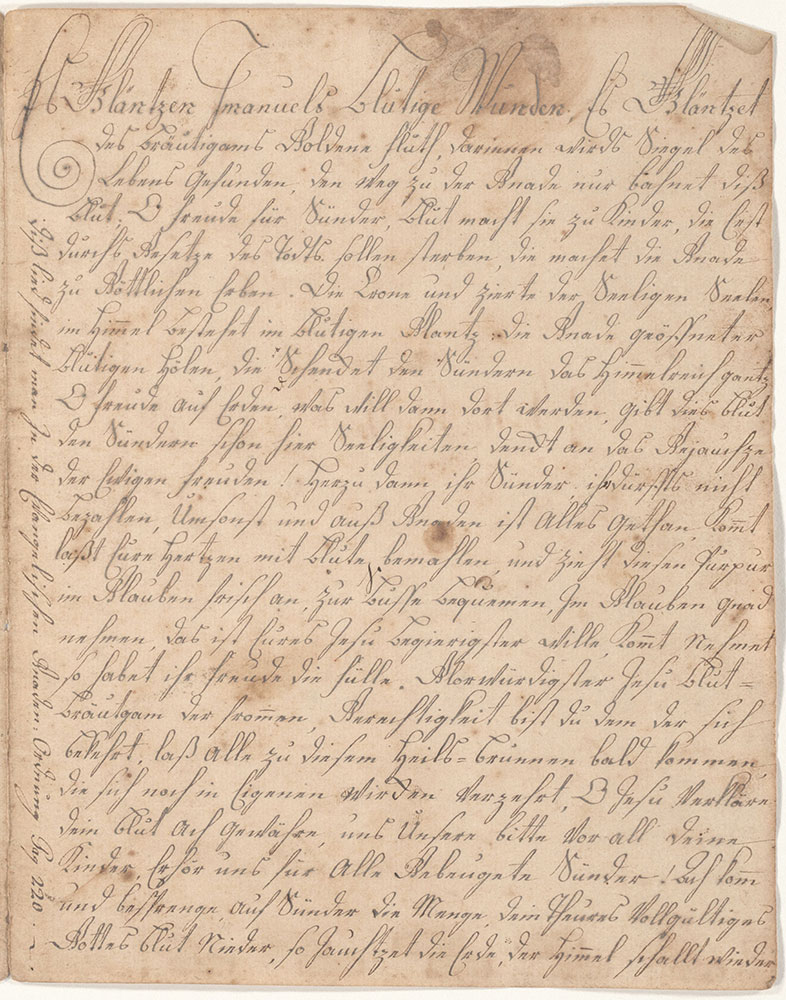 Es Gläntzen Imanuels blutige Wunden, Es Gläntzet
des Bräutigams Goldene fluth, darinnen wirds Siegel des
Lebens Gefunden, den weg zu der Gnade nur bahnet diß
blut. O freude für Sünder, blut macht sie zu Kinder, die Erst
durchs Gesetze des Todts sollen sterben, die machet die Gnade
zu Göttlichen Erben. Die Crone und zierte der Seeligen Seelen
im Himmel bestehet im blutigen Glantz, die Gnade geöffneter
blutigen Hölen, die Schendet den Sündern das Himmelreich gantz
O freude auf Erden, was will dann dort werden, gibt dies blut
den Sündern schon hier Seeligkeiten, denckt an das Gejauchze
der Ewigen freuden! Herzu dann ihr Sünder, ihr dürffts nicht
bezahlen, Umsonst und auß Gnaden ist Alles Gethan, Komt
laßt Eure Hertzen mit blute bemahlen, und zieht diesen Purpur
im Glauben frisch an, zur Busse bequemen, Im Glauben gnad
nehmen, das ist Eures Jesu begierigster wille, Komt Nehmet
so habet ihr freude die fülle. Glorwürdigster Jesu blut=
Bräutgam der frommen, Gerechtigkeit bist du dem der sich
bekehrt, laß Alle zu diesem Heils=brunnen bald kommen
die sich noch in Eigenen wirden Verzehrt, O Jesu Verkläre
dein blut Ach Gewähre, uns Unsere bitte Vor all deine
Kinder, Erhör uns für Alle Gebeugete Sünder! Ach kom
und besprenge, auf Sünder die Menge, dein Theures Vollgültiges
Gottes blut Nieder, so Jauchtzet die Erde, der Himmel schallt wieder
Diß lied findet man In der Evangelischen Gnaden-Ordnung Pag 220.